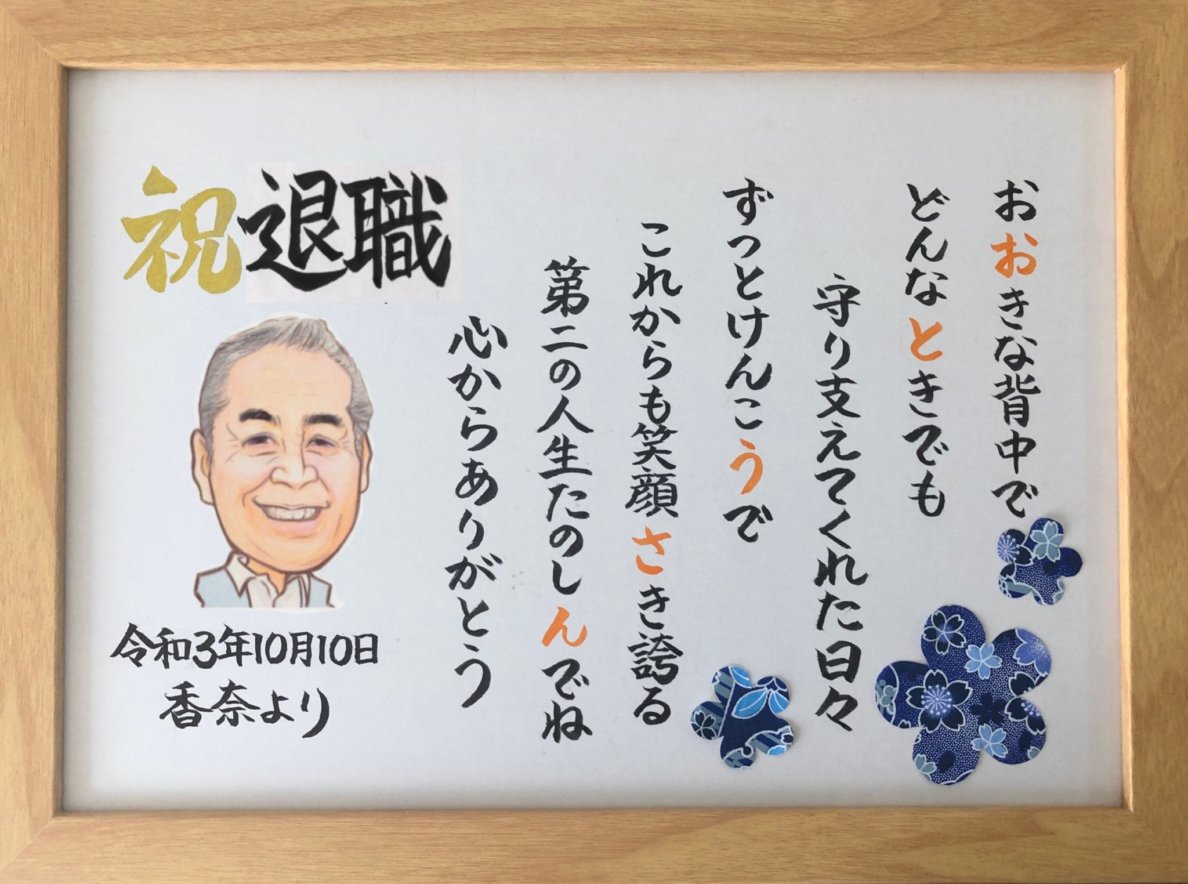 おおきな背中で
どんなときでも
守り支えてくれた日々
ずっとけんこうで
これからも笑顔さき誇る
第二の人生たのしんでね
心からありがとう
祝退職
令和3年10月10日
香奈より